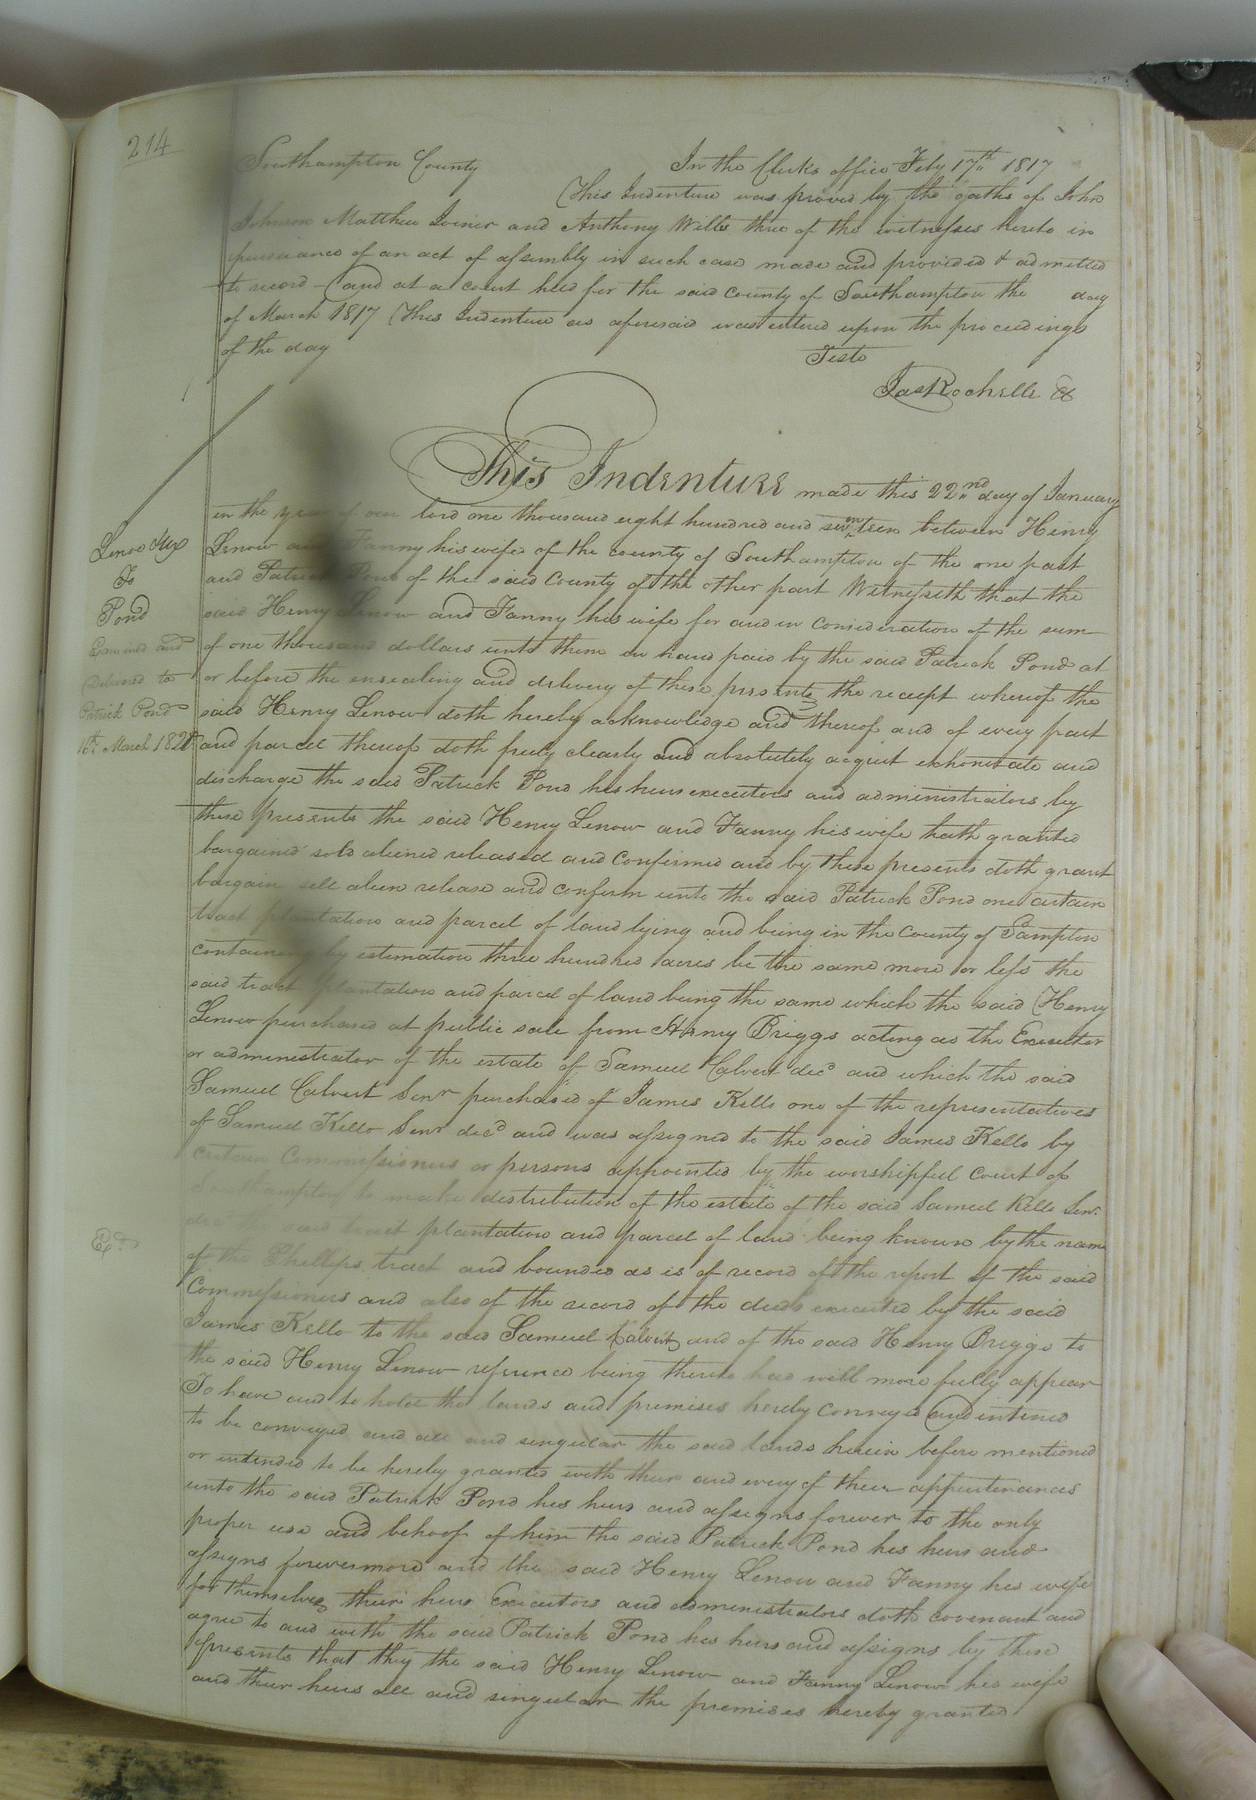 214
Southampton County In the Clerks office Feby 17th 1817
This Indenture was proved by the oaths of John
Johnson Matthew Joiner and Anthony Wills three of the witnesses hereto in
pursuance of an act of assembly in such case made and provided & admitted
to record - and at a court held for the said county of Southampton the day
of March 1817 This Indenture as aforesaid was entered upon the proceedings
of the day
Teste
Jas Rochelle
This Indenture made this 22nd day of January
in the year of our lord one thousand eight hundred and seventeen between Henry
Lenow and Fanny his wife of the county of Southampton of the one part
and Patrick Pond of the said County of the other part Witnesseth that the
said Henry Lenow and Fanny his wife for and in consideration of the sum
of one thousand dollars unto them in hand paid by the said Patrick Pond at
or before the ensealing and delivery of these presents the receipt whereof the
said Henry Lenow doth hereby acknowledge and thereof and of every part
and parcel thereof doth freely clearly and absolutely acquit exhonorate and
discharge the said Patrick Pond his heirs executors and administrators by
these presents the said Henry Lenow and Fanny his wife hath granted
bargained sold aliened released and confirmed and by these presents doth grant
bargain sell alien release and confirm unto the said Patrick Pond one certain
tract plantation and parcel of land lying and being in the County of Sampton
containing by estimation three hundred acres be the same more or less the
said tract plantation and parcel of land being the same which the said Henry
Lenow purchased at public sale from Henry Briggs acting as the Executor
or administrator of the estate of Samuel Calvert decd and which the said
Samuel Calvert Senr purchased of James Kello one of the representatives
of Samuel Kello Senr decd and was assigned to the said James Kello by
certain Commissioners or persons appointed by the worshipful court of
Southampton to make distribution of the estate of the said Samuel Kello Senr
decd the said tract plantation and parcel of land being known by the name
of the Phillips tract and bounded as is of record of the report of the said
Commissioners and also of the record of the deeds executed by the said
James Kello to the said Samuel Calvert and of the said Henry Briggs to
the said Henry Lenow reference being thereto had will more fully appear
To have and to hold the lands and premises hereby conveyed and intined
to be conveyed and all and singular the said lands herein before mentioned
or intended to be hereby granted with their and every of their appurtenances
unto the said Patrick Pond his heirs and assigns forever to the only
proper use and behoof of him the said Patrick Pond his heirs and
assigns forevermore and the said Henry Lenow and Fanny his wife
for themselves their heirs Executors and administrators doth covenant and
agree to and with the said Patrick Pond his heirs and assigns by these
presents that they the said Henry Lenow and Fanny Lenow his wife
and their heirs all and singular the premises hereby granted
Lenow & ux
To
Pond
Examined and
Delivered to
Patrick Pond
16th March 182
Exd